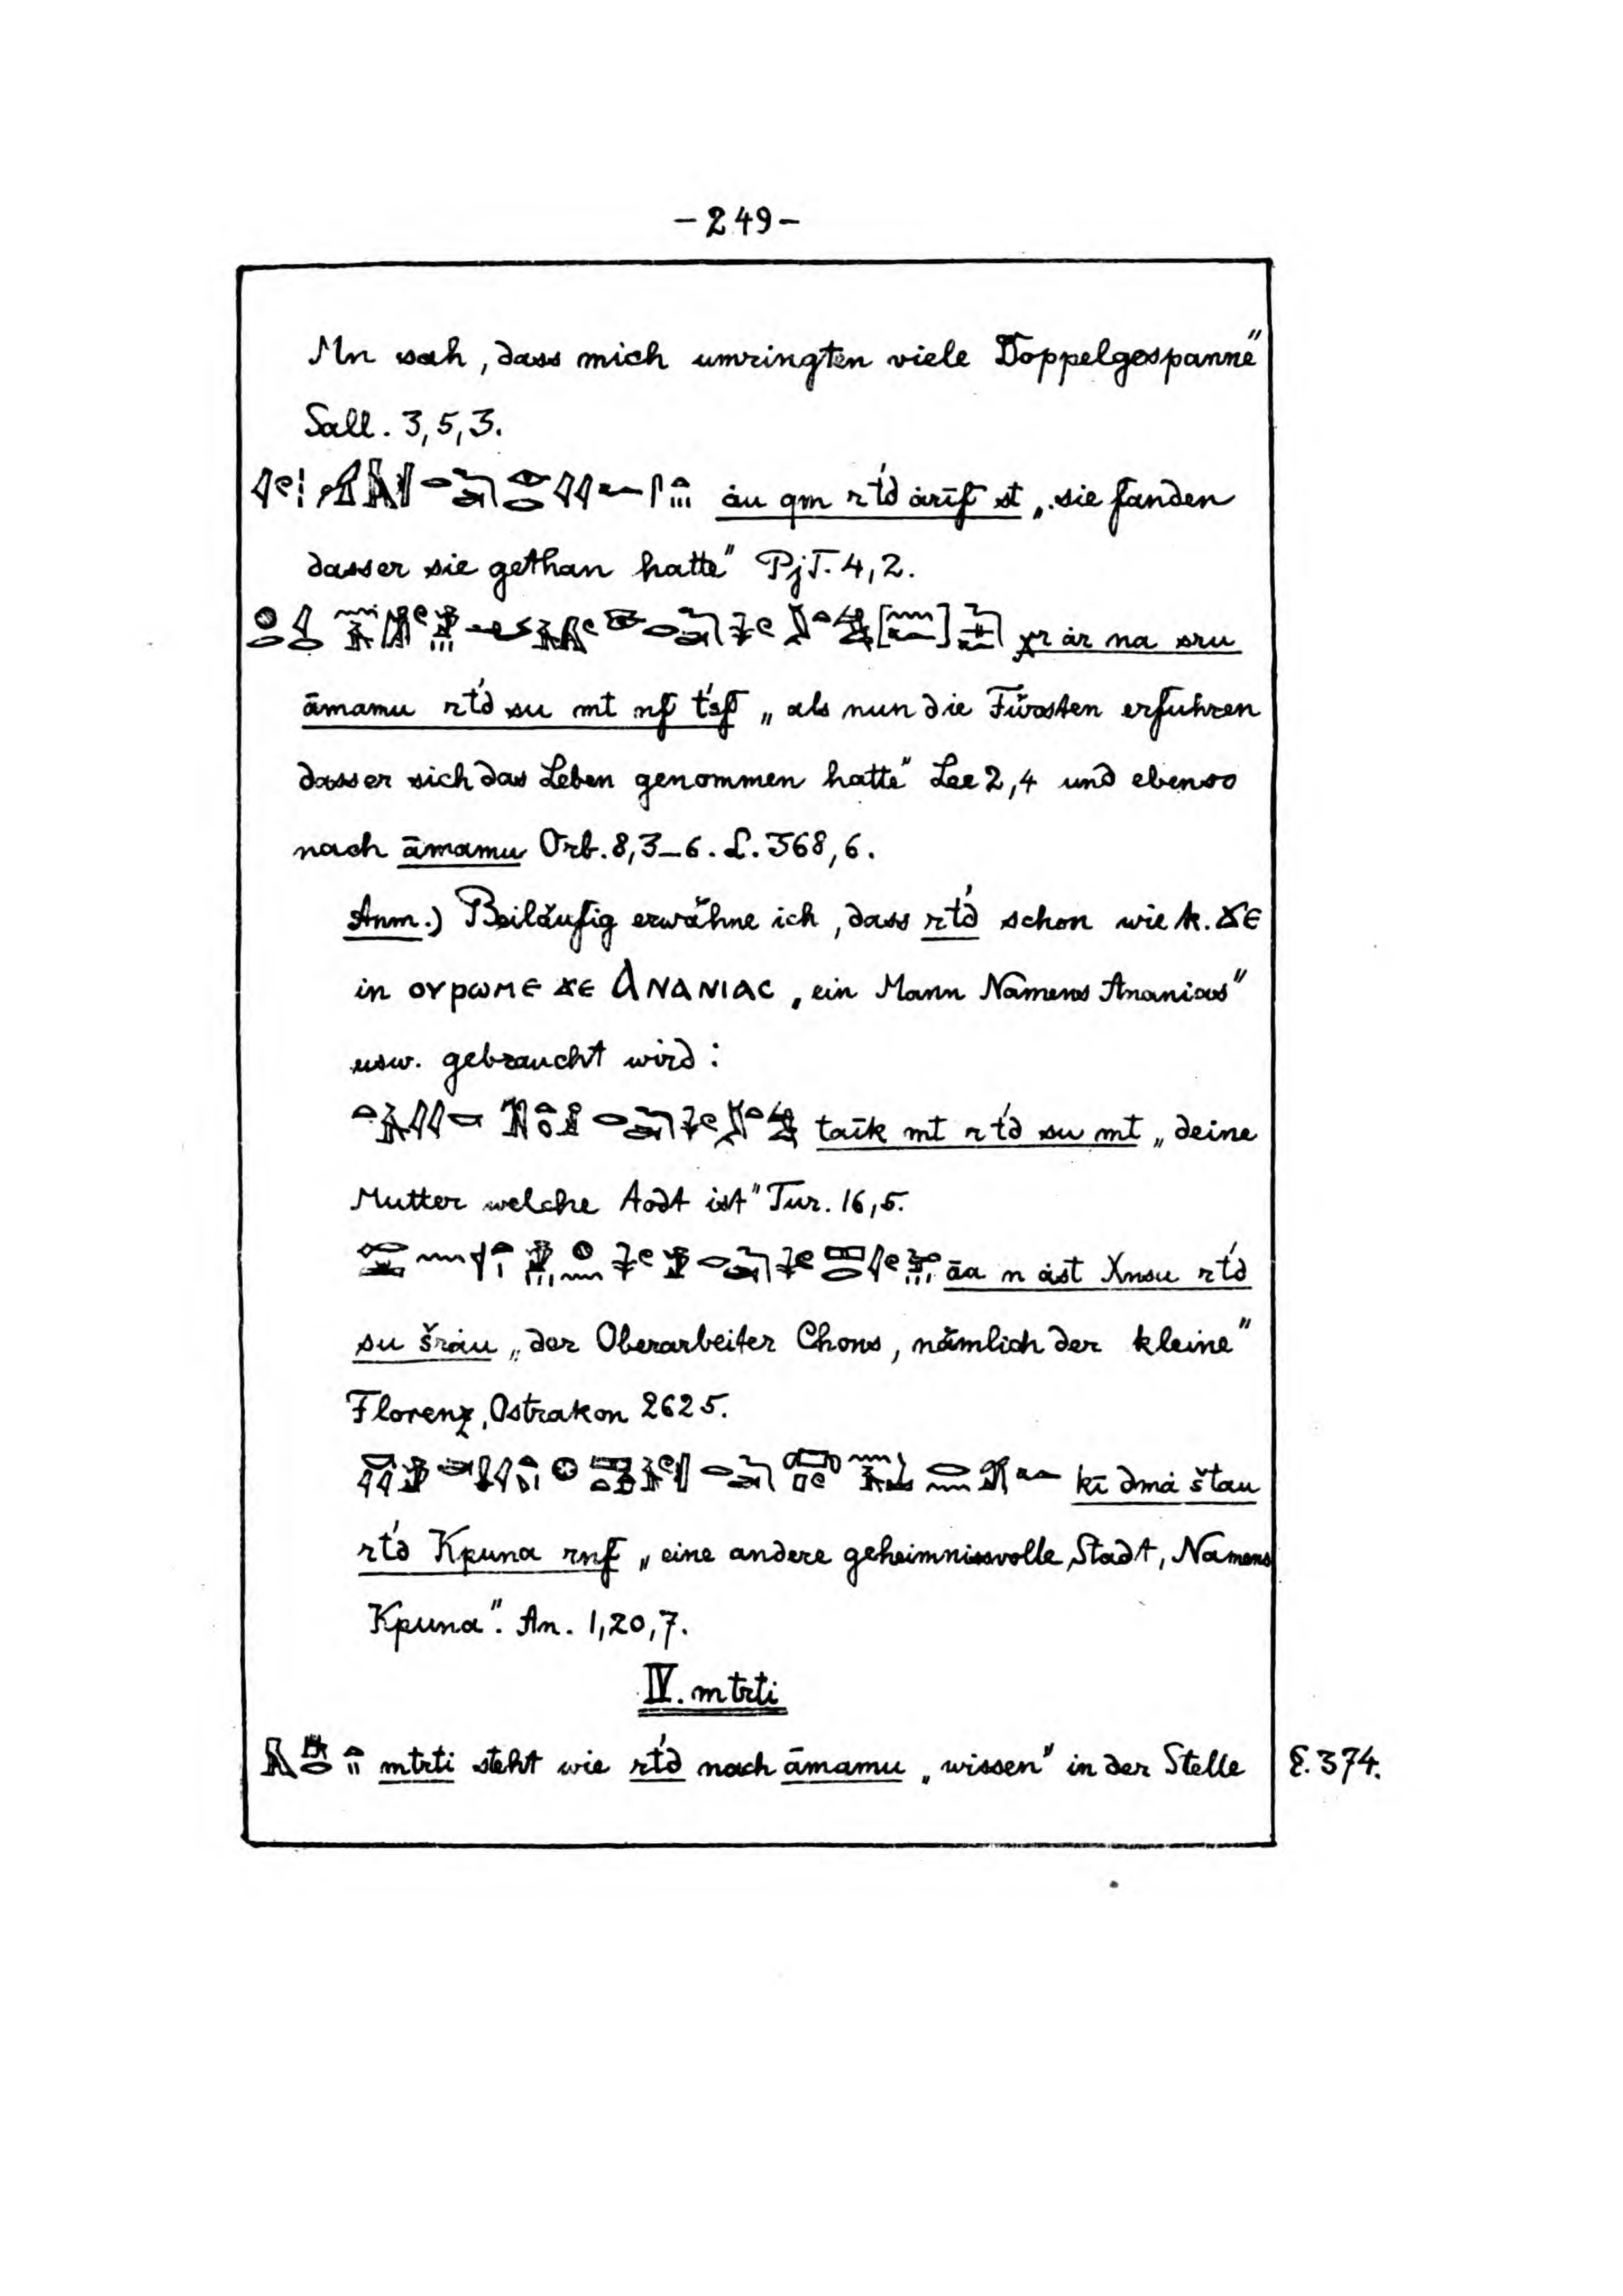 -249-
Mn sah, dass mich umringten viele Doppelgespanne"
Sall. 3,5,3.
åu qm rt́d årīf st „sie fanden
dasser sie gethan hatte" PjT. 4,2.
χr år na sru
āmamu rt́d su mt nf t́sf „als nun die Fürsten erfuhren
dasser sich das Leben genommen hatte" Lee 2,4 und ebenso
nach āmamu Orb. 8,3_6. L. 368,6.
Anm.) Beiläufig erwähne ich, dass rt́d schon wie k. ϫⲉ
in ⲟⲩⲣⲱⲙⲉ ϫⲉ ⲁⲛⲁⲛⲓⲁⲥ „ein Mann Namens Ananias"
usw. gebraucht wird:
taīk mt rt́d su mt „deine
Mutter welche todt ist" Tur. 16,5.
āa n åst Xnsu rt́d
su šråu „der Oberarbeiter Chons, nämlich der kleine"
Florenz, Ostrakon 2625.
kī dmå štau
rt́d Kpuna rnf „eine andere geheimnissvolle Stadt, Namens
Kpuna". An. 1,20,7.
IV. mtrti
mtrti steht wie rt́d nach āmamu „wissen" in der Stelle §. 374.